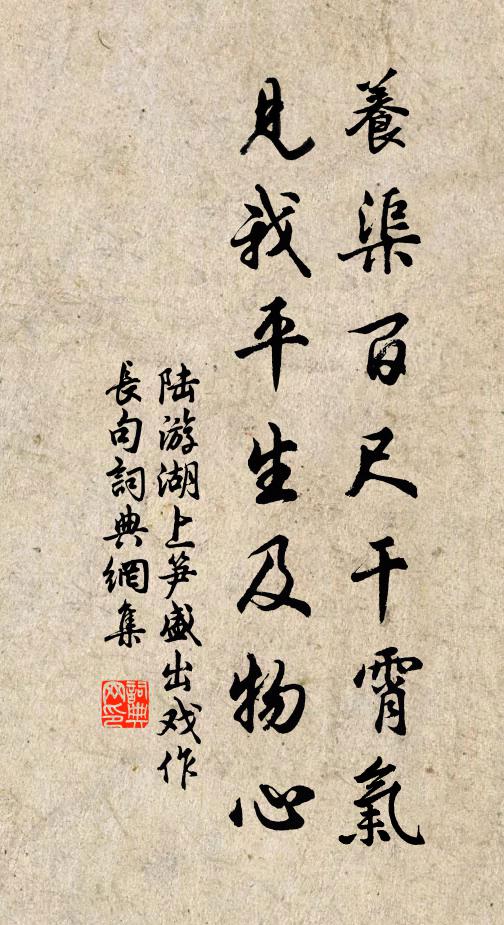 養渠百尺干霄氣
見我平生及物心
陆游湖上笋盛出戏作
長句詞典網集
詞典网印